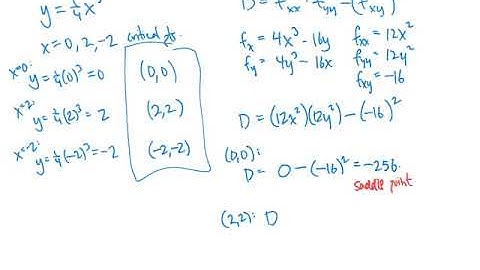 y = ¼x³
x = 0, 2, -2 critical pts.
x=0: y = ¼(0)³ = 0 (0,0)
x=2: y = ¼(2)³ = 2 (2,2)
x=-2: y = ¼(-2)³ = -2 (-2,-2)
D = fxx · fyy - (fxy)²
fx = 4x³ - 16y fxx = 12x²
fy = 4y³ - 16x fyy = 12y²
fxy = -16
D = (12x²)(12y²) - (-16)²
(0,0):
D = 0 - (-16)² = -256.
saddle point
(2,2): D